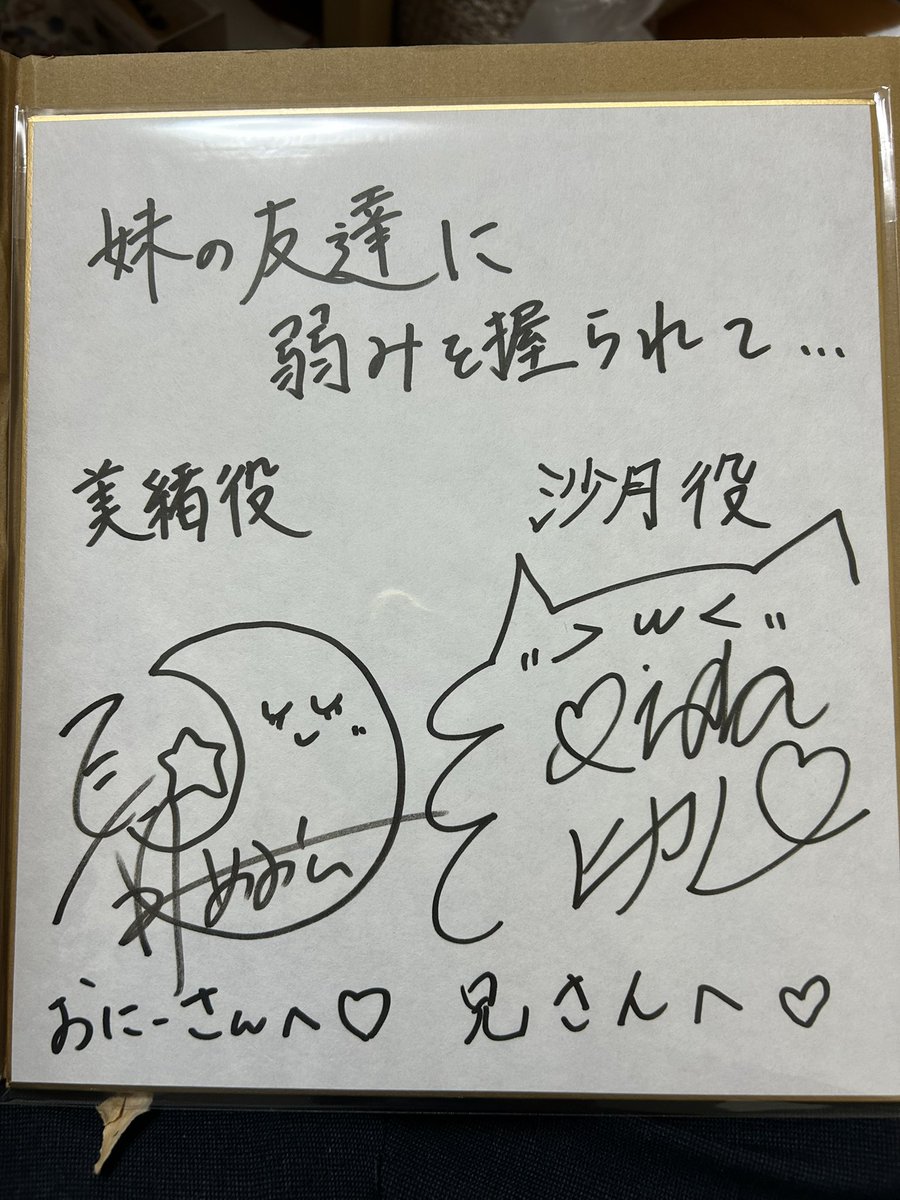 妹の友達に
弱みを握られて…
美緒役
沙月役
>w<
おにーさんへ♡
兄さんへ♡